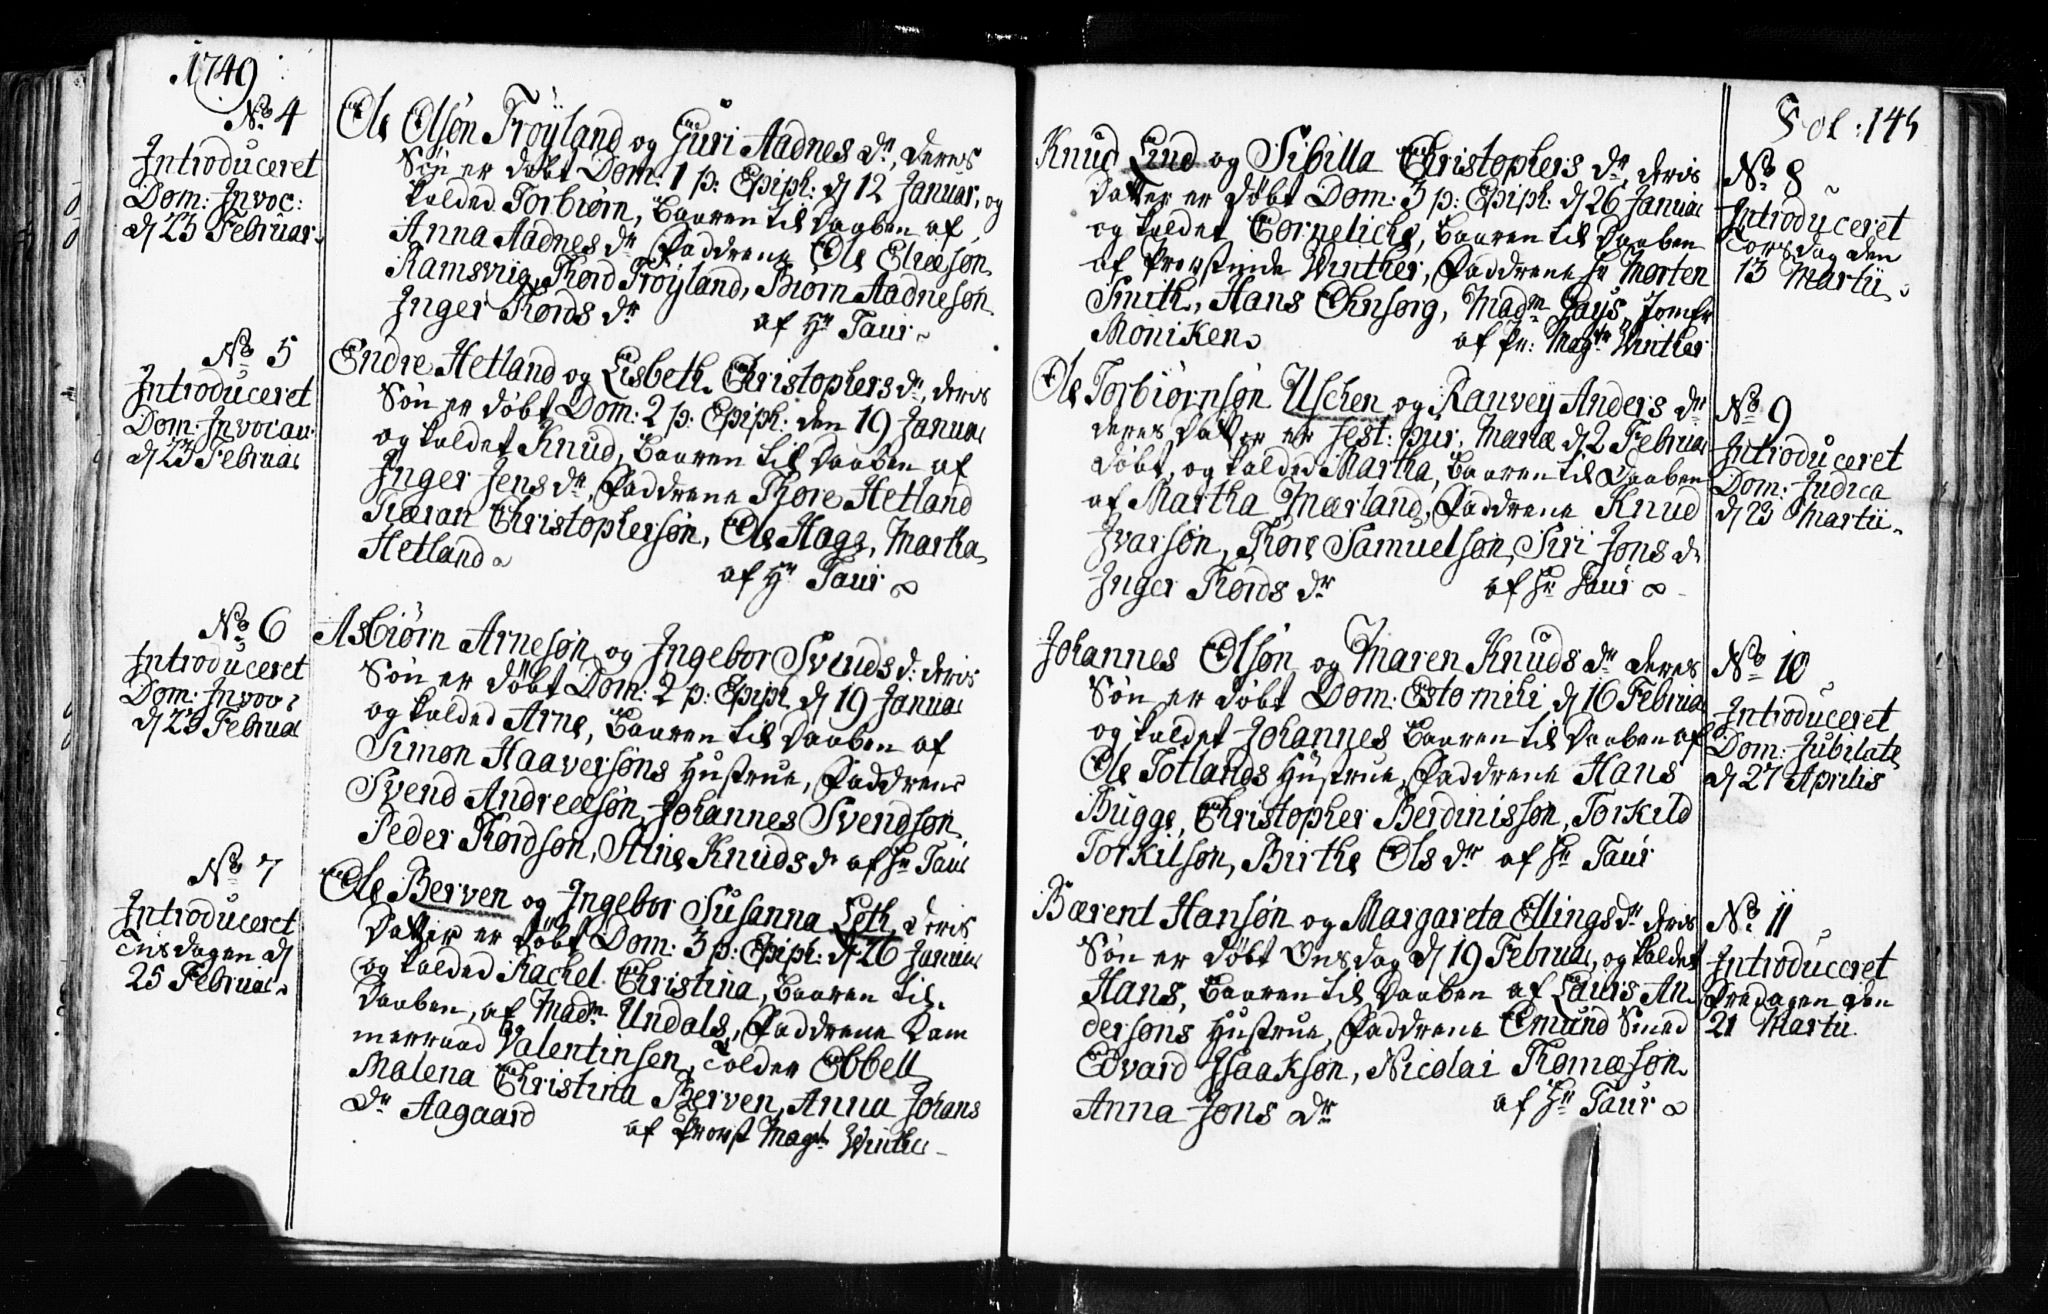 1749
No 4
Introduceret
Dom: Invoc:
d 23 Februar.
Ole Olsøn Frøyland og Guri Aadnes dr, deres
Søn er døbt Dom: 1 p: Epiph: d 12 Januar, og
kalded Torbiørn, baaren til Daaben af
Anna Aadnes dr Faddrene Ole Eliæsøn
Ramsviig, Thord Frøyland, Biørn Aadnesøn
Inger Thords dr af Hr Taur
No 5
Introduceret
Dom: Invocav:
d 23 Februar
Endre Hetland og Lisbeth Christophers dr, deris
Søn er døbt Dom: 2 p: Epiph: den 19 Januar
og kaldet Knud, baaren til Daaben af
Inger Jens dr, Faddrene Thore Hetland
Christophersøn, Ole Hage, Martha
Hetland af Hr Taur
No 6
Introduceret
Dom: Invoc:
d 23 Februar
Asbiørn Arnesøn og Ingebor Svends d: deris
Søn er døbt Dom: 2 p: Epiph d 19 Januar
og kalded Arne, baaren til Daaben af
Simon Haaversøns Hustrue, Faddrene
Svend Andreæsøn, Johannes Svendsøn
Peder Thordsøn, Stine Knuds dr af Hr Taur
No 7
Introduceret
Tisdagen d
25 Februar
Ole Berven og Ingebor Susanna Loth, deris
Datter er døbt Dom: 3 p: Epiph: d 26 Januar
og kalded Rachel Christina, baaren til
Daaben, af Madm Undals, Faddrene Kam
merraad Valentinsen, Tolder Ebbell
Malena Christina Berven, Anna Johans
dr Aagaard af Provst Magr Winther
Fol: 145
Knud Lind og Sibilla Christophers dr, deris
Datter er døbt Dom: 3 p: Epiph: d 26 Januar
og kaldet Cornelicke, baaren til Daaben
af Provstinde Winther, Faddrene Hr Morten
Smith, Hans Ohnsorg, Madm Gays, Jomfr
Moniken af Pr: Magr Winther
No 8
Introduceret
Torsdag den
13 Martii
Ole Torbiørnsøn Uschen og Ranvey Anders dr
deres Datter er Fest: pur: Mariæ d 2 Februar
døbt, og kalded Martha, baaren til Daaben
af Martha Mærland, Faddrene Knud
Ivarsøn, Thore Samuelsøn, Siri Jons d
Inger Thords dr af Hr Taur
No 9
Introduceret
Dom: Judica
d 23 Martii
Johannes Olsøn og Maren Knuds dr deres
Søn er døbt Dom: Esto mihi d 16 Februar
og kaldet Johannes baaren til Daaben af
Ole Totlands Hustrue, Faddrene Hans
Bugge, Christopher Berdinissøn, Torkild
Torkilsøn, Birthe Ols dr af Hr Taur
No 10
Introduceret
Dom: Jubilate
d 27 Aprilis
Bærent Hansøn og Margareta Ellings dr deris
Søn er døbt Onsdag d 19 Februar, og kaldet
Hans, baaren til Daaben af Laurs An
dersøns Hustrue, Faddrene Emund Smed
Edvard Isaaksøn, Nicolai Thomæsøn
Anna Jons dr af Hr Taur
No 11
Introduceret
Fredagen den
21 Martii